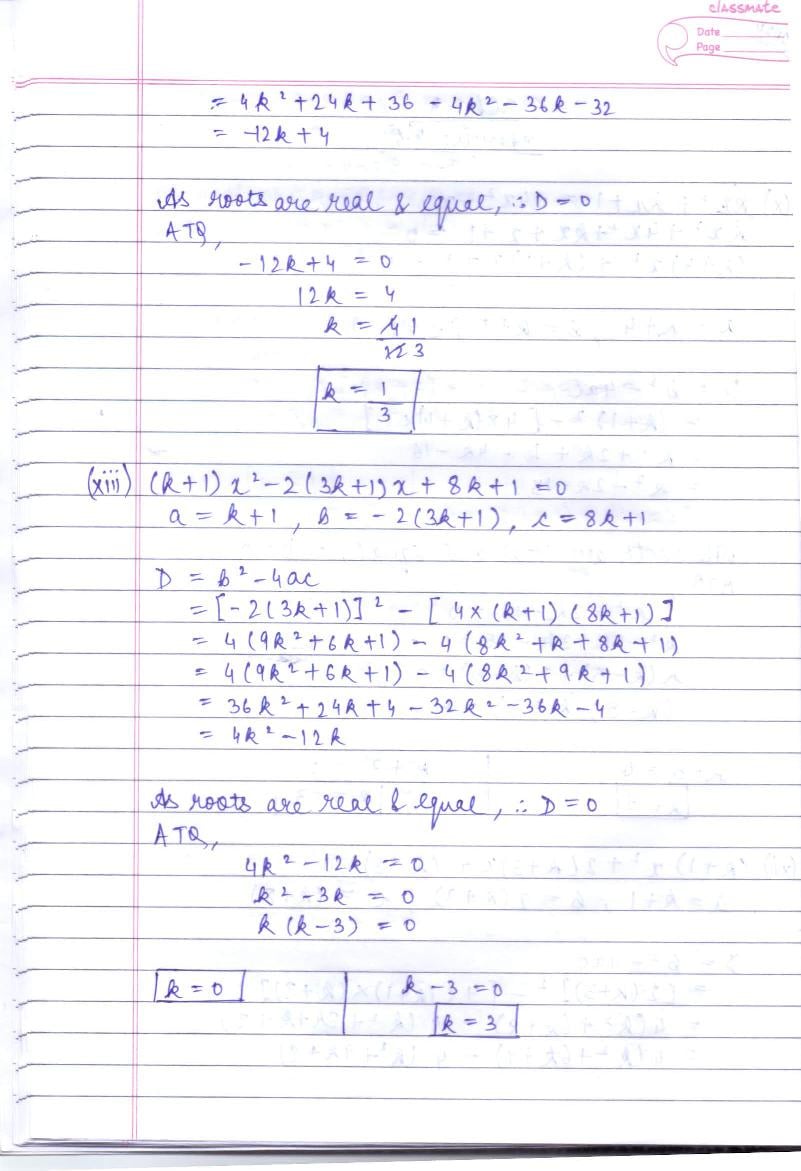 classmate
Date
Page
= 4k² + 24k + 36 - 4k² - 36k - 32
= -12k + 4
As roots are real & equal, ∴ D = 0
ATQ,
-12k + 4 = 0
12k = 4
k = 4 1
12 3
k = 1
3
(xiii) (k+1) x² - 2(3k+1) x + 8k + 1 = 0
a = k+1, b = -2(3k+1), c = 8k+1
D = b² - 4ac
= [-2(3k+1)]² - [4 × (k+1) (8k+1)]
= 4(9k² + 6k + 1) - 4(8k² + k + 8k + 1)
= 4(9k² + 6k + 1) - 4(8k² + 9k + 1)
= 36k² + 24k + 4 - 32k² - 36k - 4
= 4k² - 12k
As roots are real & equal, ∴ D = 0
ATQ,
4k² - 12k = 0
k² - 3k = 0
k (k-3) = 0
k = 0 k - 3 = 0
k = 3